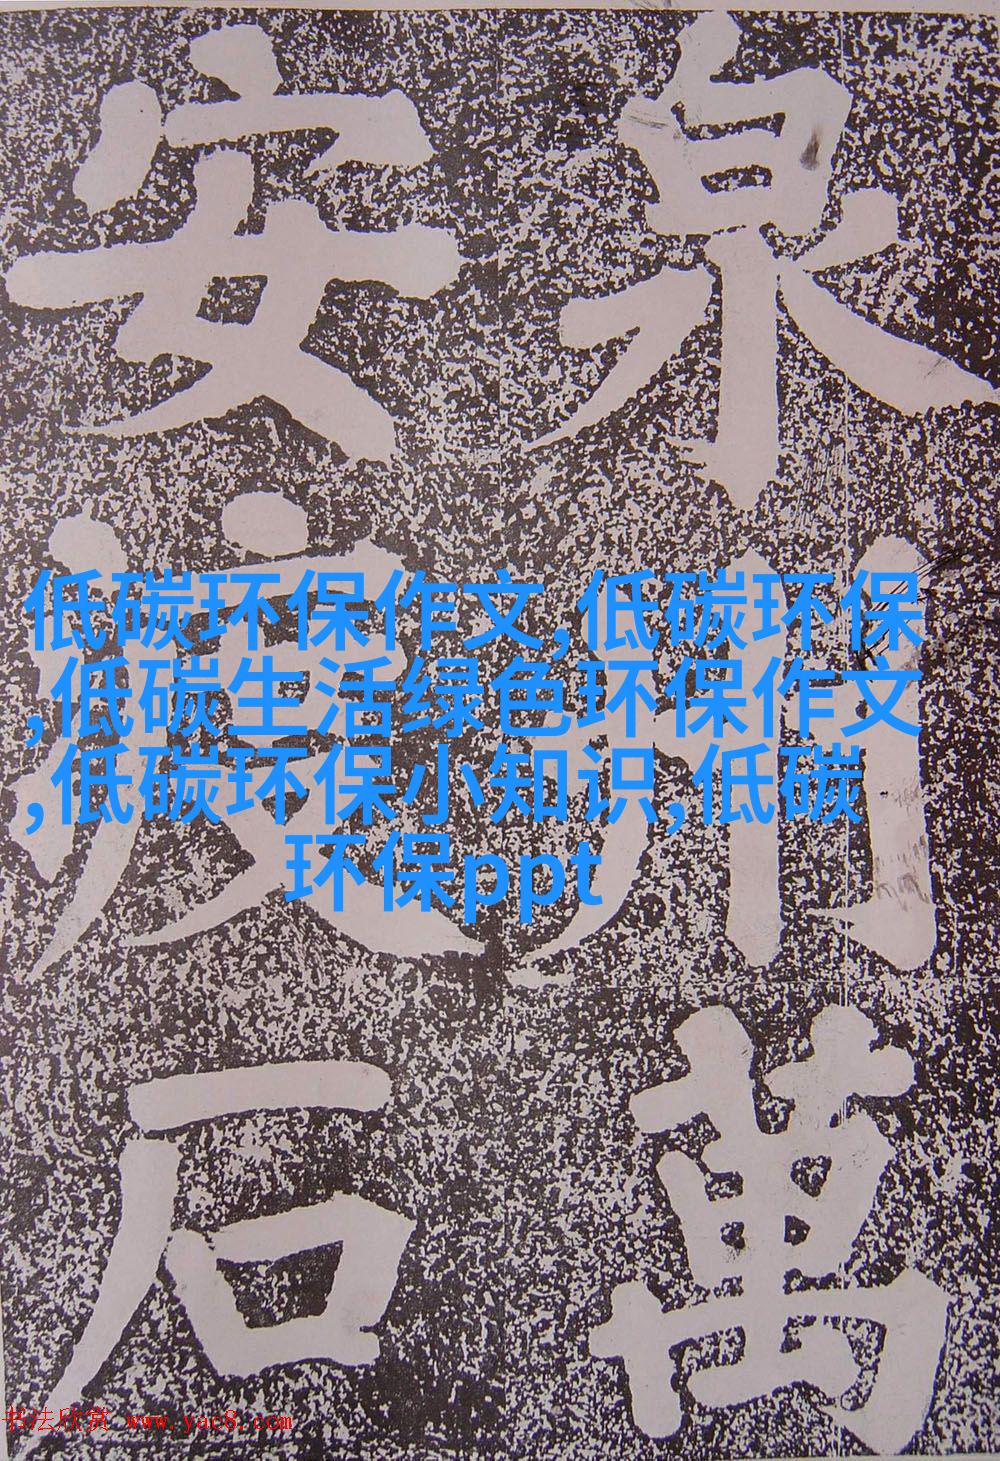 泉州萬
安渡石
低碳环保作文,低碳环保
,低碳生活绿色环保作文
,低碳环保小知识,低碳
环保ppt
书法欣赏 www.yac8.com